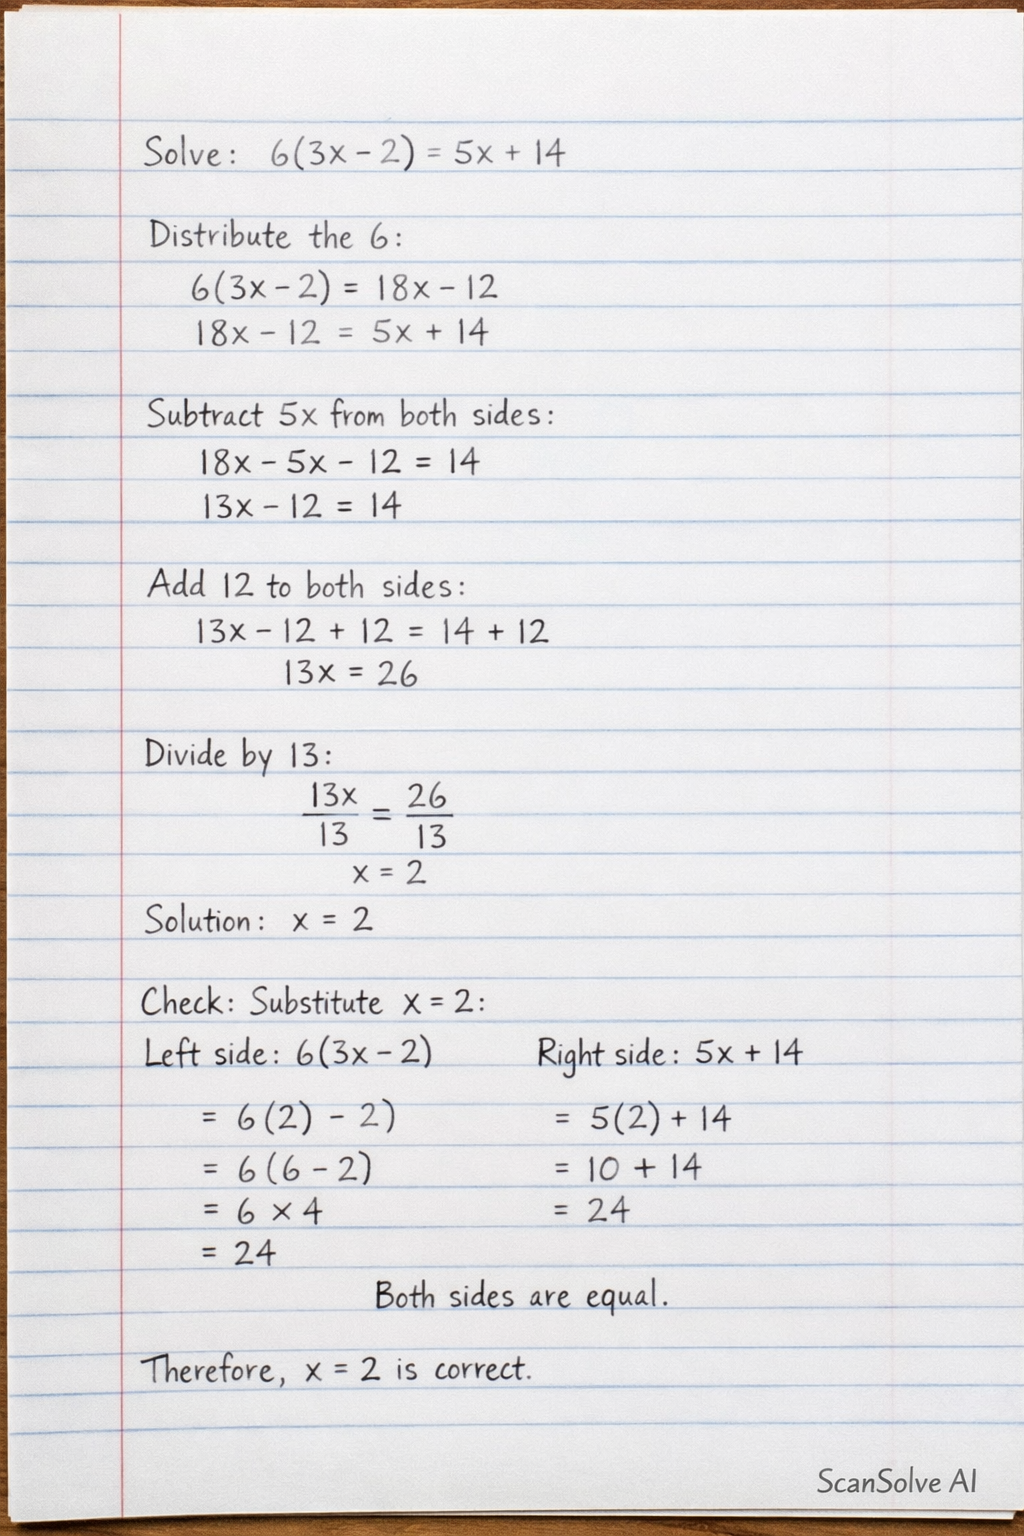 Solve: 6(3x - 2) = 5x + 14
Distribute the 6:
6(3x - 2) = 18x - 12
18x - 12 = 5x + 14
Subtract 5x from both sides:
18x - 5x - 12 = 14
13x - 12 = 14
Add 12 to both sides:
13x - 12 + 12 = 14 + 12
13x = 26
Divide by 13:
13x/13 = 26/13
x = 2
Solution: x = 2
Check: Substitute x = 2:
Left side: 6(3x - 2) Right side: 5x + 14
= 6(2) - 2) = 5(2) + 14
= 6(6 - 2) = 10 + 14
= 6 × 4 = 24
= 24
Both sides are equal.
Therefore, x = 2 is correct.
ScanSolve AI